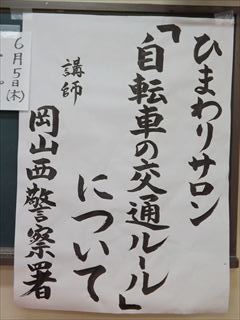 ひまわりサロン
「自転車の交通ルール」
について
講師
岡山西警察署
6月5日(木)